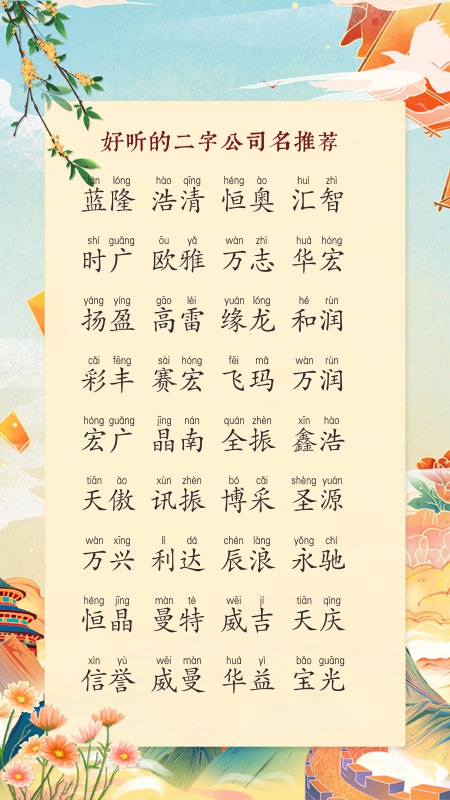 好听的二字公司名推荐
lán lóng hào qīng héng ào huì zhì
蓝隆 浩清 恒奥 汇智
shí guǎng ōu yǎ wàn zhì huá hóng
时广 欧雅 万志 华宏
yáng yíng gāo léi yuán lóng hé rùn
扬盈 高雷 缘龙 和润
cǎi fēng sài hóng fēi mǎ wàn rùn
彩丰 赛宏 飞玛 万润
hóng guǎng jīng nán quán zhèn xīn hào
宏广 晶南 全振 鑫浩
tiān ào xùn zhèn bó cǎi shèng yuán
天傲 讯振 博采 圣源
wàn xīng lì dá chén làng yǒng chí
万兴 利达 辰浪 永驰
héng jīng màn tè wēi jí tiān qìng
恒晶 曼特 威吉 天庆
xìn yù wēi màn huá yì bǎo guāng
信誉 威曼 华益 宝光